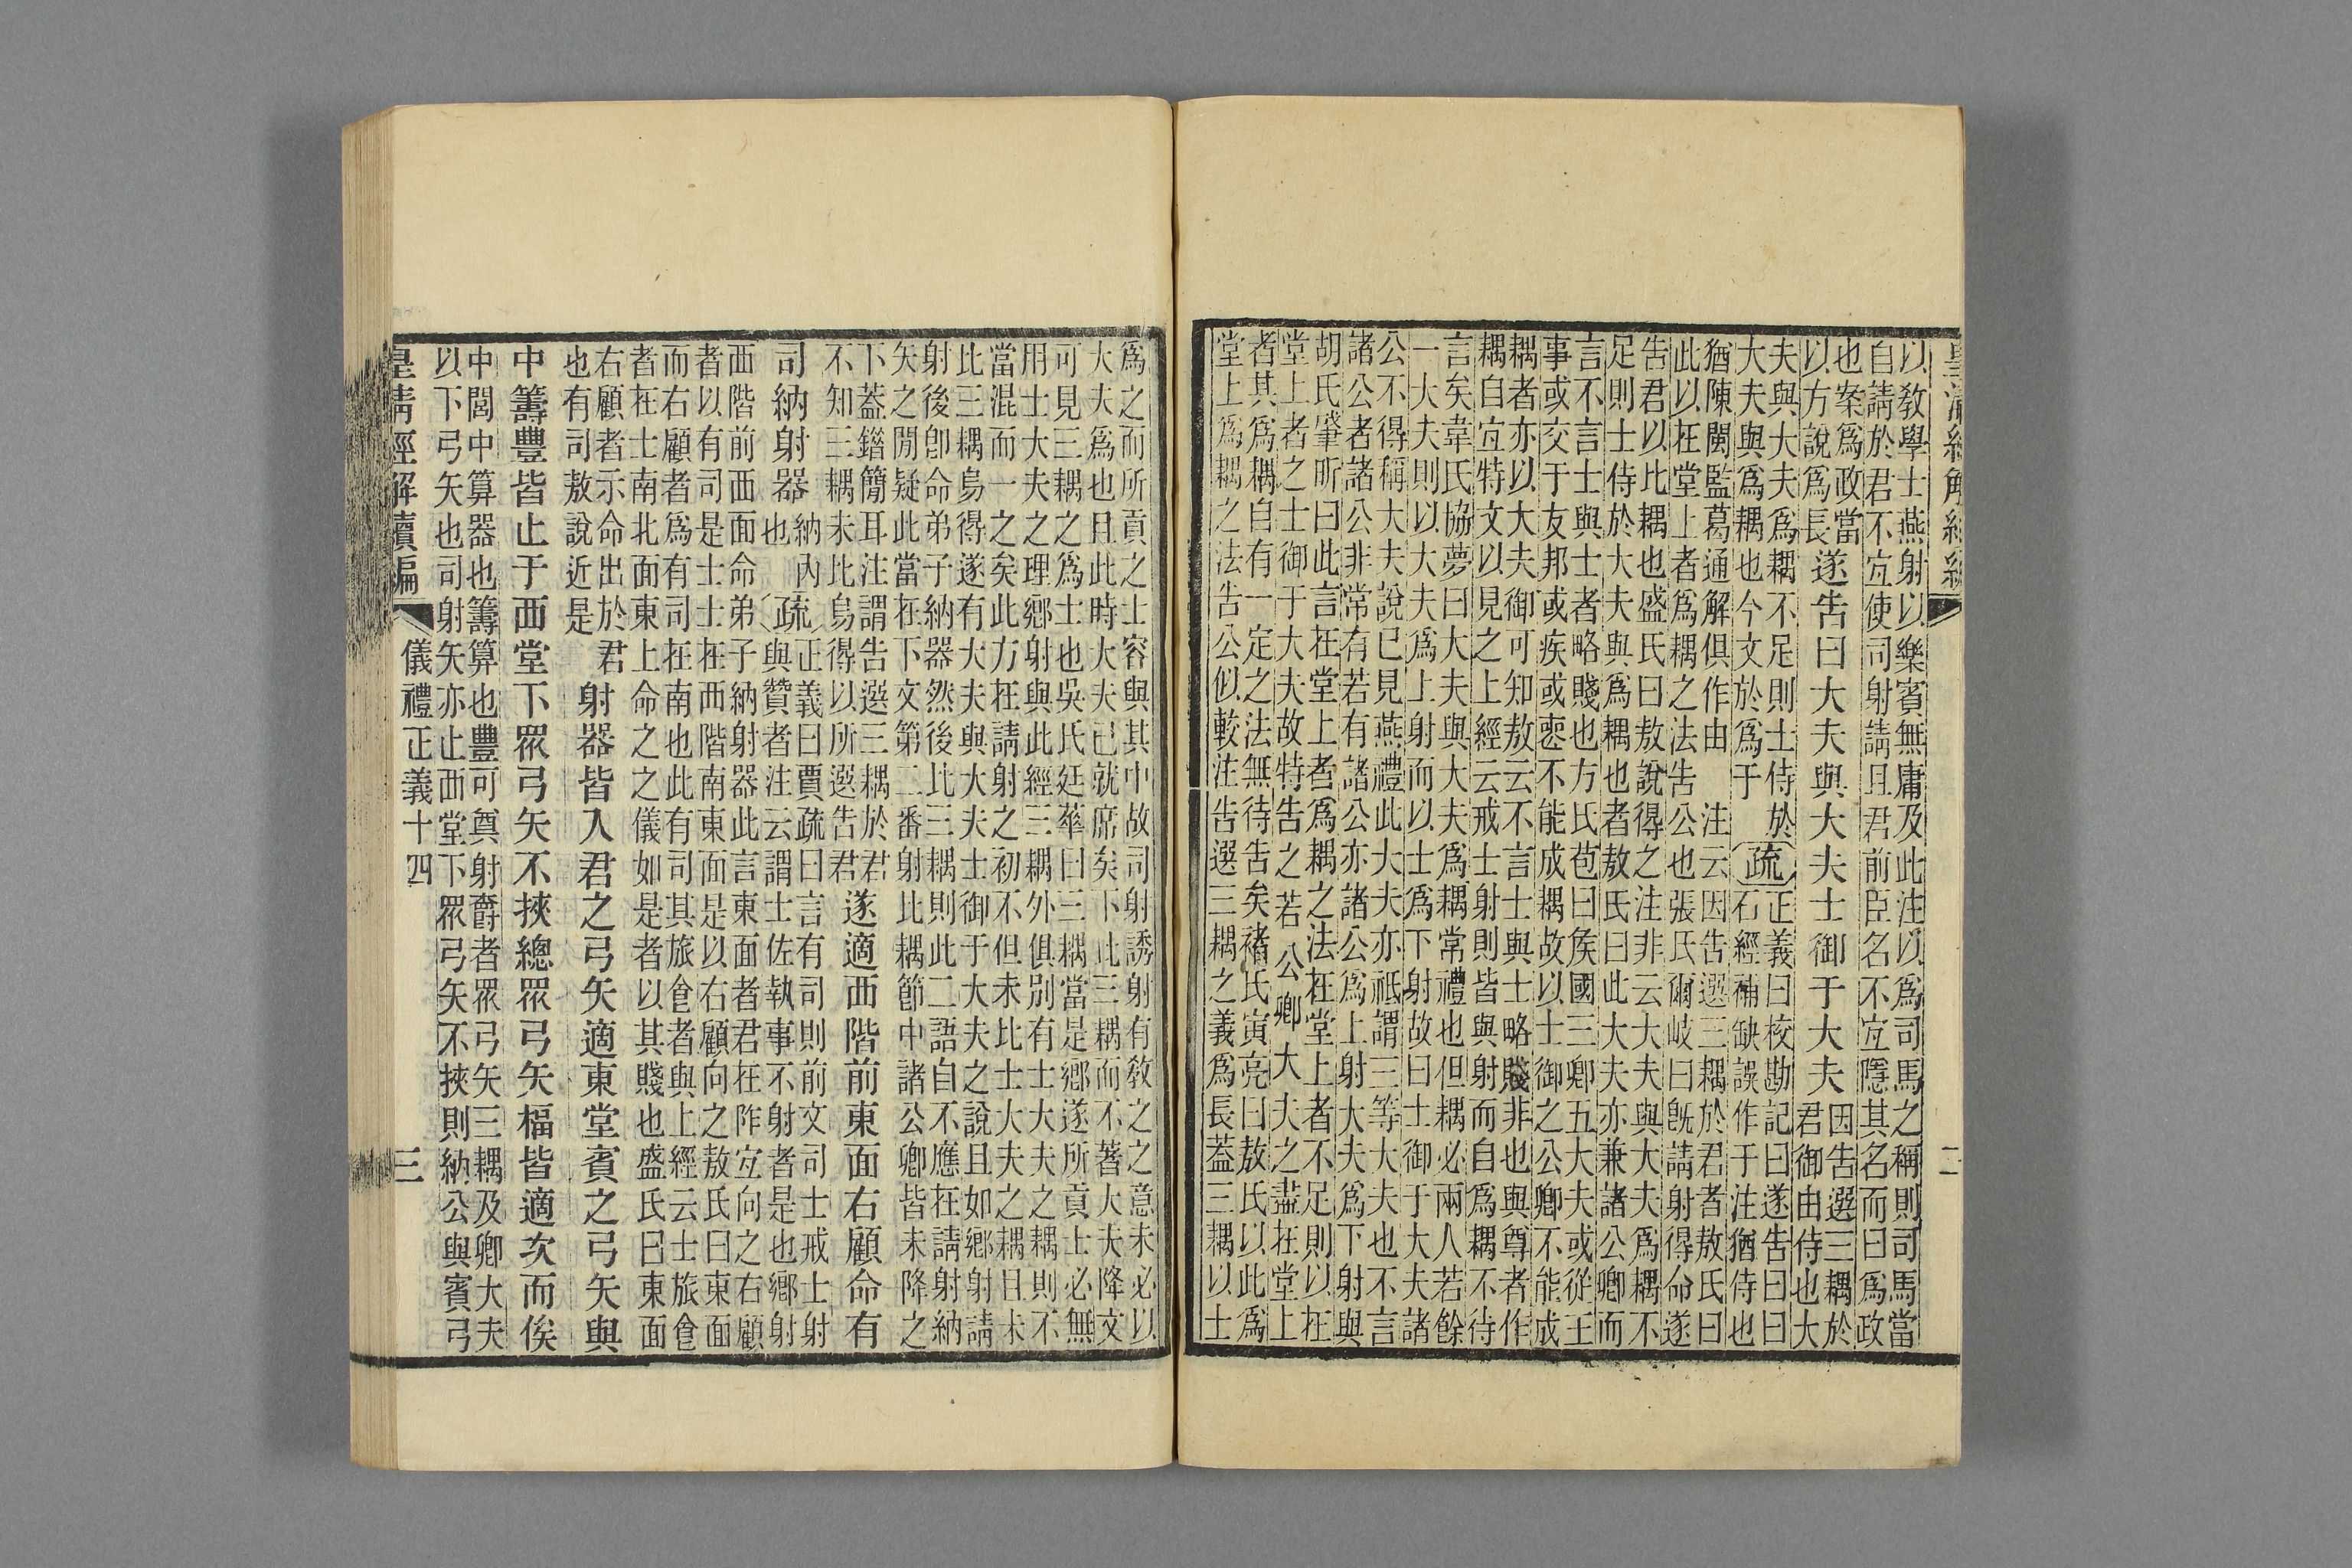 皇清經解續編
二
以敎學士燕射以樂賓無庸及此注以爲司馬之稱則司馬當
自請於君不宜使司射請且君前臣名不宜隱其名而曰爲政
也案爲政當
以方說爲長
遂告曰大夫與大夫士御于大夫
因告選三耦於
君御由侍也大
夫與大夫爲耦不足則士侍於
大夫與爲耦也今文於爲于
疏
正義曰校勘記曰遂告曰曰
石經補缺誤作于注猶侍也
猶陳閩監葛通解俱作由 注云因告選三耦於君者敖氏曰
此以在堂上者爲耦之法告公也張氏爾岐曰旣請射得命遂
告君以比耦也盛氏曰敖說得之注非云大夫與大夫爲耦不
足則士侍於大夫與爲耦也者敖氏曰此大夫亦兼諸公卿而
言不言士與士者略賤也方氏苞曰矦國三卿五大夫或從王
事或交于友邦或疾或悳不能成耦故以士御之公卿不能成
耦者亦以大夫御可知敖云不言士與士略賤非也與尊者作
耦自宜特文以見之上經云戒士射則皆與射而自爲耦不待
言矣韋氏協夢曰大夫與大夫爲耦常禮也但耦必兩人若餘
一大夫則以大夫爲上射而以士爲下射故曰士御于大夫諸
公不得稱大夫說已見燕禮此大夫亦祗謂三等大夫也不言
諸公者諸公非常有若有諸公亦諸公爲上射大夫爲下射與
胡氏肇昕曰此言在堂上者爲耦之法在堂上者不足則以在
堂上者之士御于大夫故特告之若公卿大夫之盡在堂上
者其爲耦自有一定之法無待告矣褚氏寅亮曰敖氏以此爲
堂上爲耦之法告公似較注告選三耦之義爲長蓋三耦以士
爲之而所貢之士容與其中故司射誘射有敎之之意未必以
大夫爲也且此時大夫已就席矣下此三耦而不著大夫降文
可見三耦之爲士也吳氏廷華曰三耦當是鄉遂所貢士必無
用士大夫之理鄉射與此經三耦外俱別有士大夫之耦則不
當混而一之矣此方在請射之初不但未比士大夫之耦且未
比三耦烏得遂有大夫與大夫士御于大夫之說且如鄉射請
射後卽命弟子納器然後比三耦則此二語自不應在請射納
矢之閒疑此當在下文第二番射比耦節中諸公卿皆未降之
下蓋錯簡耳注謂告選三耦於君
不知三耦未比烏得以所選告君
遂適西階前東面右顧命有
司納射器
納內
也
疏
正義曰賈疏曰言有司則前文司士戒士射
與贊者注云謂士佐執事不射者是也鄉射
西階前西面命弟子納射器此言東面者君在阼宜向之右顧
者以有司是士士在西階南東面是以右顧向之敖氏曰東面
而右顧者爲有司在南也此有司其旅食者與上經云士旅食
者在士南北面東上命之之儀如是者以其賤也盛氏曰東面
右顧者示命出於君
也有司敖說近是
射器皆入君之弓矢適東堂賓之弓矢與
中籌豐皆止于西堂下眾弓矢不挾總眾弓矢楅皆適次而俟
中閭中算器也籌算也豐可奠射爵者眾弓矢三耦及卿大夫
以下弓矢也司射矢亦止西堂下眾弓矢不挾則納公與賓弓
皇清經解續編
儀禮正義十四
三